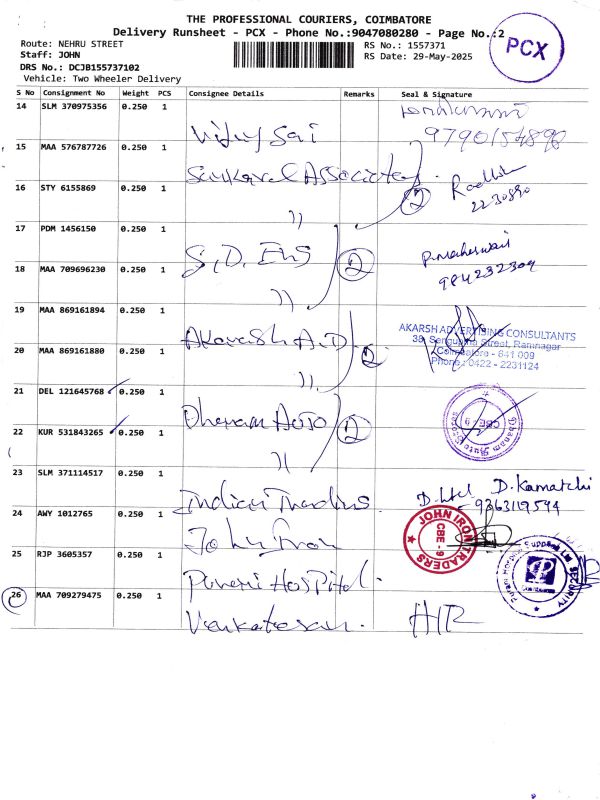 THE PROFESSIONAL COURIERS, COIMBATORE
Delivery Runsheet - PCX - Phone No.:9047080280 - Page No.:2
PCX
Route: NEHRU STREET
Staff: JOHN
DRS No.: DCJB155737102
Vehicle: Two Wheeler Delivery
RS No.: 1557371
RS Date: 29-May-2025
S No Consignment No Weight PCS Consignee Details Remarks Seal & Signature
14 SLM 370975356 0.250 1 Vijay Sai
15 MAA 576787726 0.250 1 Sankaral Associates
16 STY 6155869 0.250 1 )) 2
2230890
17 PDM 1456150 0.250 1 S.D. Ens
P.maheswari
984232304
18 MAA 709696230 0.250 1 )) 2
19 MAA 869161894 0.250 1 Akarash A.D.
AKARSH ADVERTISING CONSULTANTS
38, Sengupta Street, Ramnagar
Coimbatore - 641 009
Phone : 0422 - 2231124
20 MAA 869161880 0.250 1 )) 2
21 DEL 121645768 0.250 1 Dhanam Auto
Dhanam Auto
CBE - 9
22 KUR 531843265 0.250 1 )) 2
23 SLM 371114517 0.250 1 Indian Traders
D. Kamatchi
9363119594
24 AWY 1012765 0.250 1 John Iron
JOHN IRON TRADERS
CBE - 9
25 RJP 3605357 0.250 1 Puneri Hospital
SECURITY
26 MAA 709279475 0.250 1 Venkatesan HR